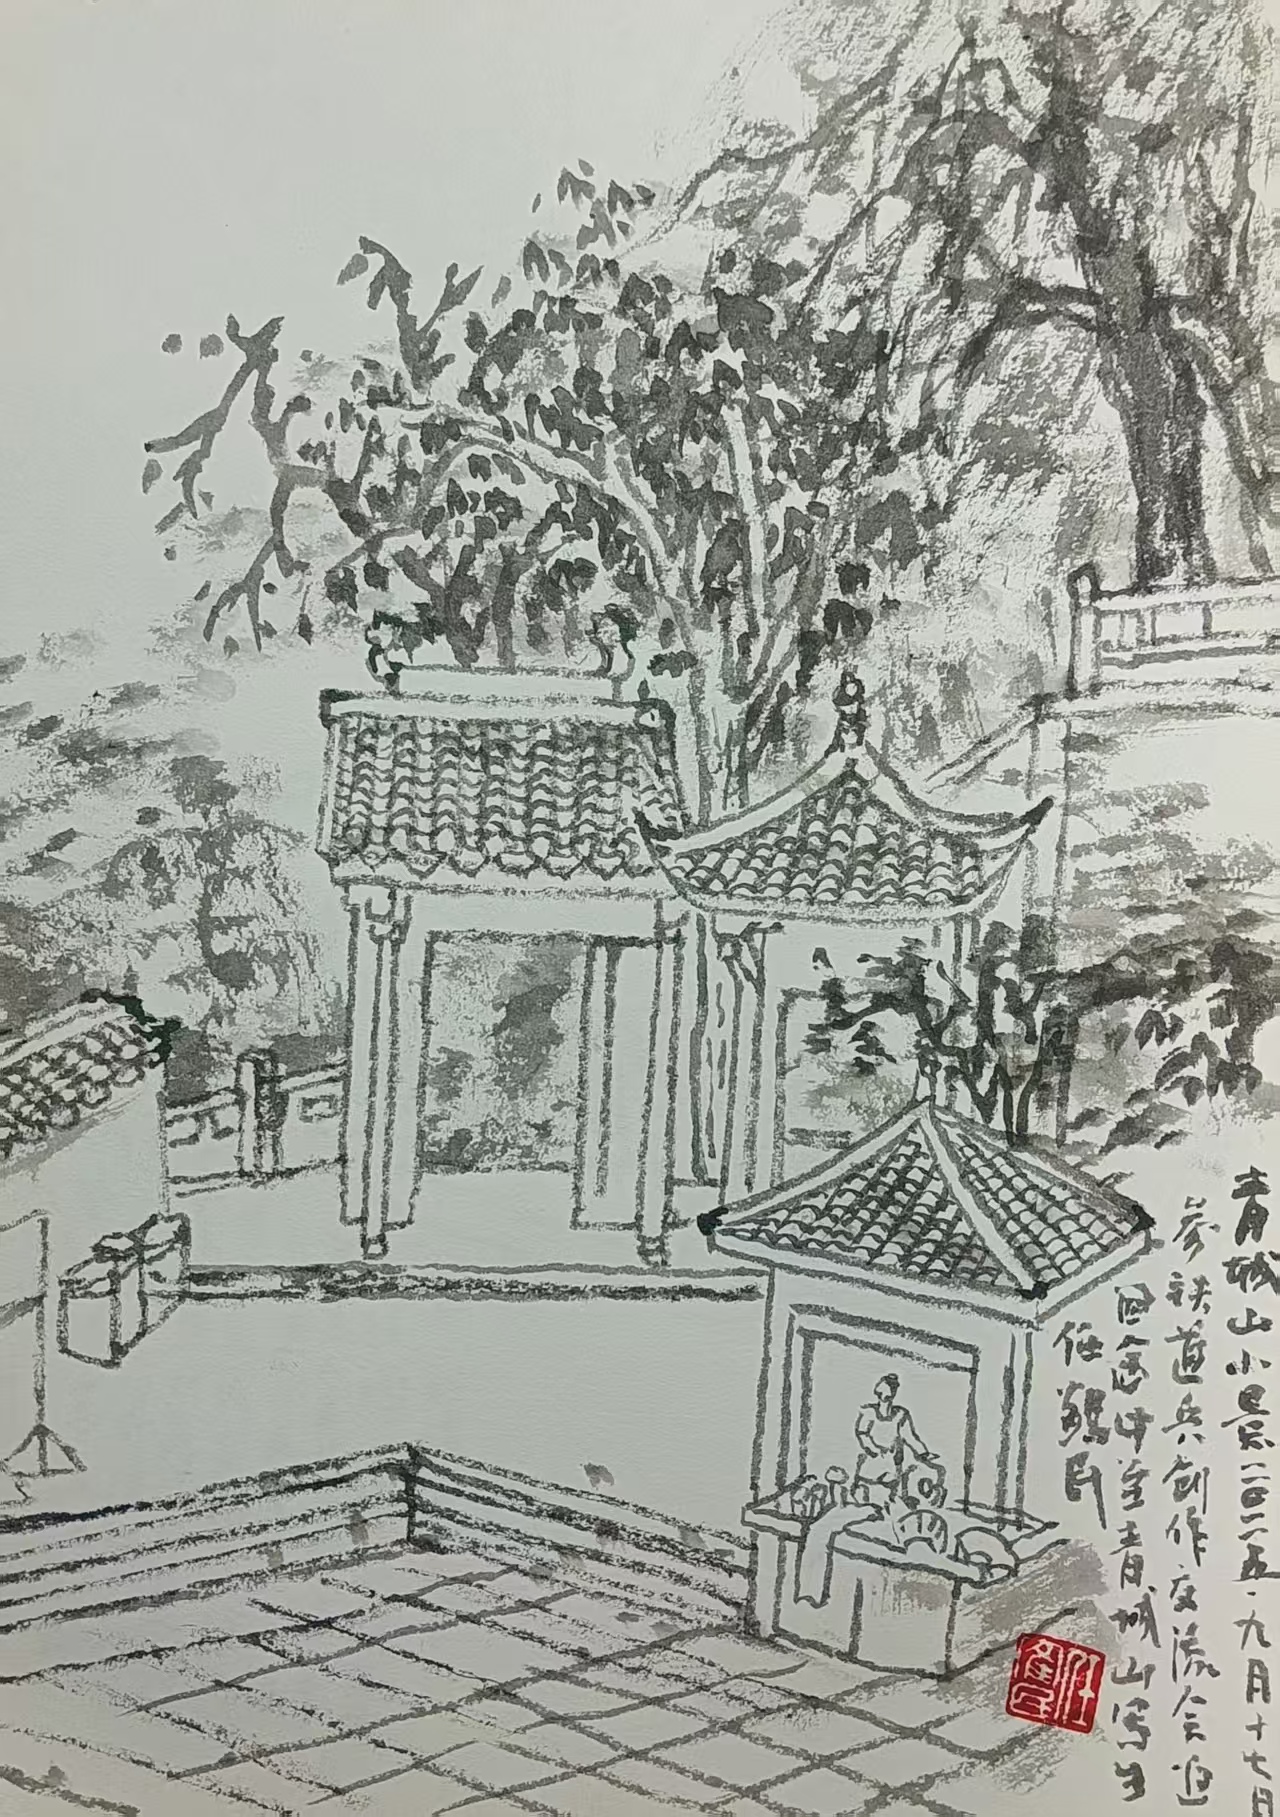 青城山小景二〇二五·九月十七日
参铁道兵创作交流会返
回途中至青城山写生
任民